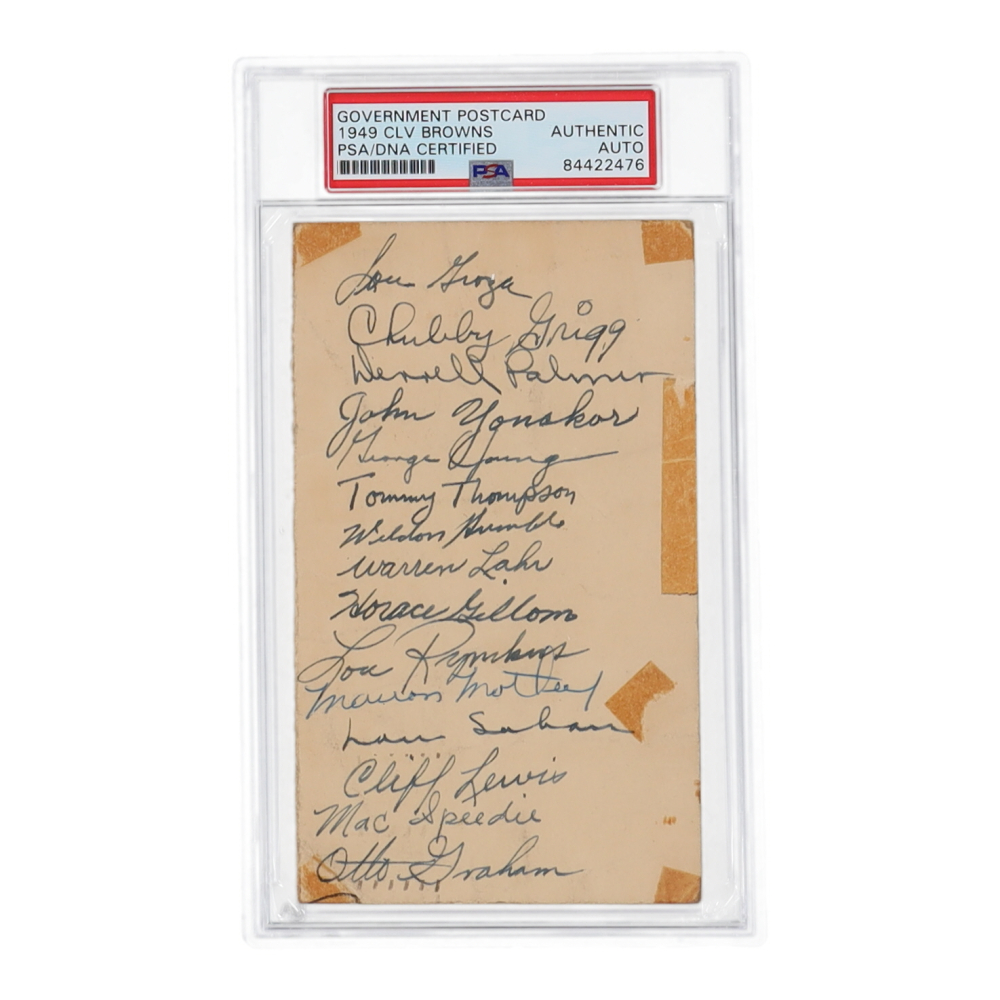 GOVERNMENT POSTCARD
1949 CLV BROWNS AUTHENTIC
PSA/DNA CERTIFIED AUTO
PSA 84422476
Lou Groza
Chubby Grigg
Derrell Palmer
John Yonakor
George Young
Tommy Thompson
Weldon Humble
Warren Lahr
Horace Gillom
Lou Rymkus
Marion Motley
Lou Saban
Cliff Lewis
Mac Speedie
Otto Graham